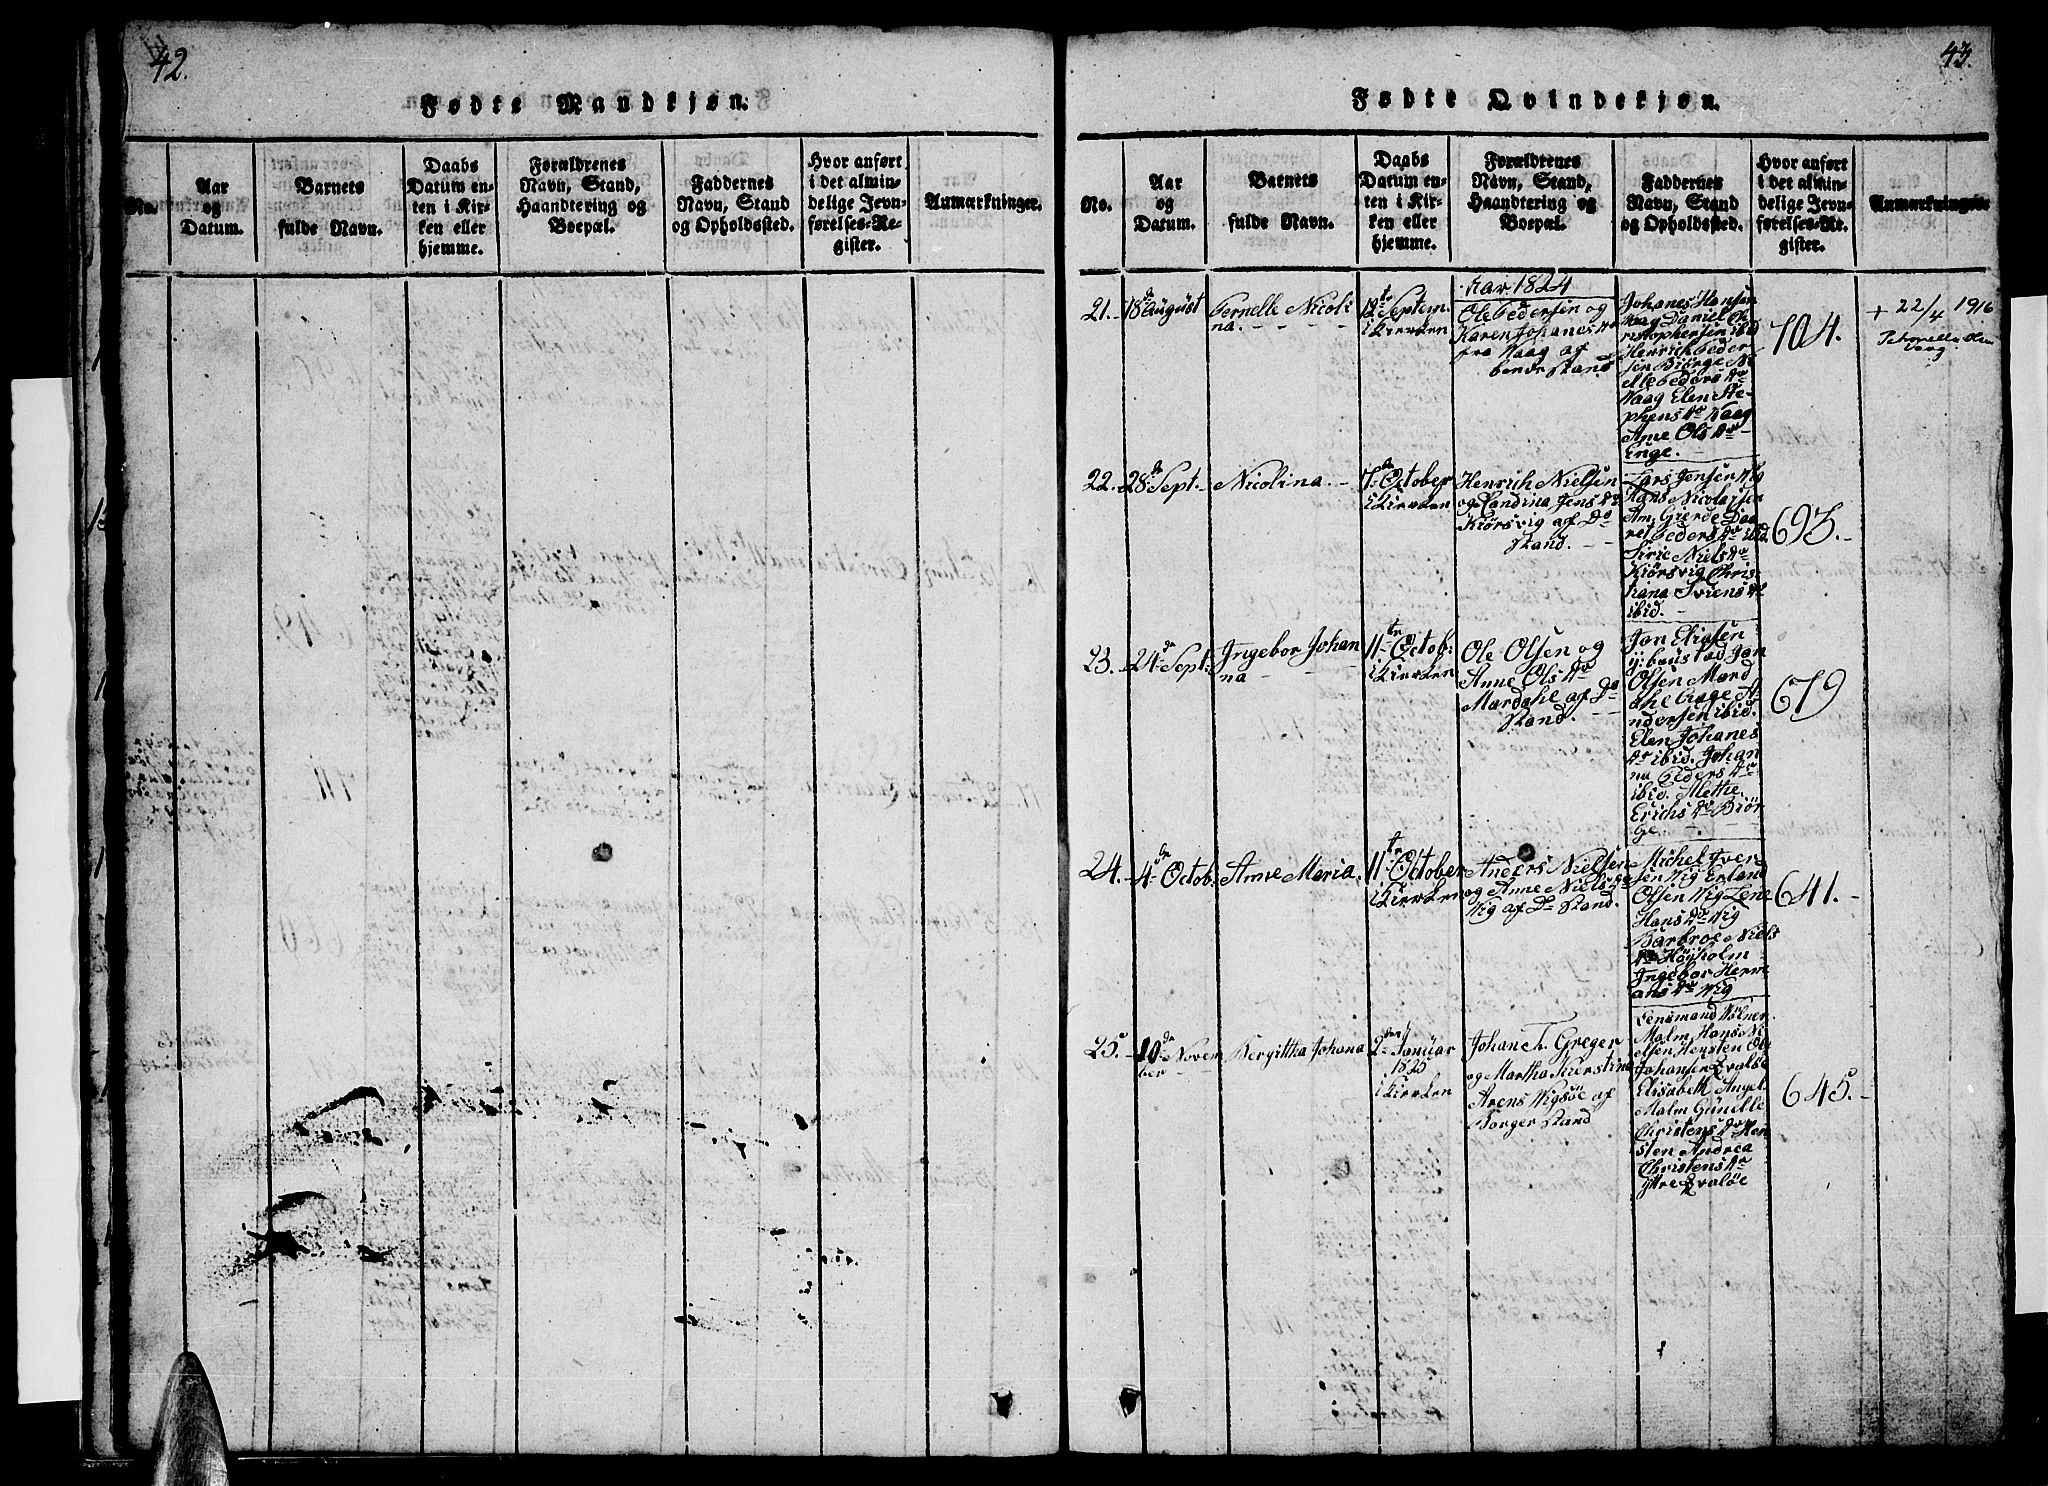 42.
Fødte Mandkjøn.
No.
Aar
og
Datum.
Barnets
fulde Navn.
Daabs
Datum en-
ten i Kir-
ken eller
hjemme.
Forældrenes
Navn, Stand,
Haandtering og
Boepæl.
Faddernes
Navn, Stand
og Opholdssted.
Hvor anført
i det almin-
delige Jevn-
førelses-Re-
gister.
Anmærkninger.
43.
Fødte Qvindekjøn.
No.
Aar
og
Datum.
Barnets
fulde Navn.
Daabs
Datum en-
ten i Kir-
ken eller
hjemme.
Forældrenes
Navn, Stand,
Haandtering og
Boepæl.
Faddernes
Navn, Stand
og Opholdssted.
Hvor anført
i det almin-
delige Jevn-
førelses-Re-
gister.
Anmærkninger.
Aar 1824
21.
18de August
Pernelle Nicoli
na.
12te Septem.
i Kirken
Ole Pedersen og
Karen Johanes dr
fra Vaag af
bondestand
Johanes Hansen
Vaag Daniel Ch
ristophersen ibid
Henrich Peder
sen Biørge
Ole Peders dr
Vaag Elen Ste-
phens dr Vaag
Ane Ols dr
Enge.
704.
+ 22/4 1916
22.
28de Sept.
Nicolina.
7de October
i Kirken
Henrich Nielsen
og Jens dr
Kiørsvig af Do
Stand.
Lars Jensen Vig
Hans Nicolaisen
Gierde
Peders dr ibid.
Sirie Niels dr
Kiørsvig Chris-
tiana Ivers dr
ibid.
693.
23.
24de Sept.
Ingebor Johan
na
11te Octob:
i Kirken
Ole Olsen og
Anne Ols dr
Mardahl af Do
Stand.
Jon Eliasen
Jon
Olsen Mard
ahl Aage A
ndersen ibid.
Elen Johanes
dr ibid. Johan
na Peders dr
ibid. Methe
Erichs dr Biør
ge.
679
24.
4de Octob:
Anne Maria.
11te October
i Kirken
Anders Nielsen
og Anne Niels dr
Vig af Do Stand.
Michel Iver
sen Vig Erland
Olsen Vig Lene
Hans dr Vig
Barbroe Niels
dr Høyholm
Ingebor Herm
ans dr Vig
641.
25.
10de Novem
ber
Bergittha Johana
2den Januar
1825
i Kirken
Johan T. Greger
og Martha Kierstine
Arens Vigsøe af
Borger Stand
Lensmand Wolner
Malm Hans Ni
elsen Hensten Ole
Johansen Qvaløe
Elisabeth Angel
Malm Gunelle
Christens dr Hen
sten Andrea
Christens dr
Ytre Qvaløe
645.